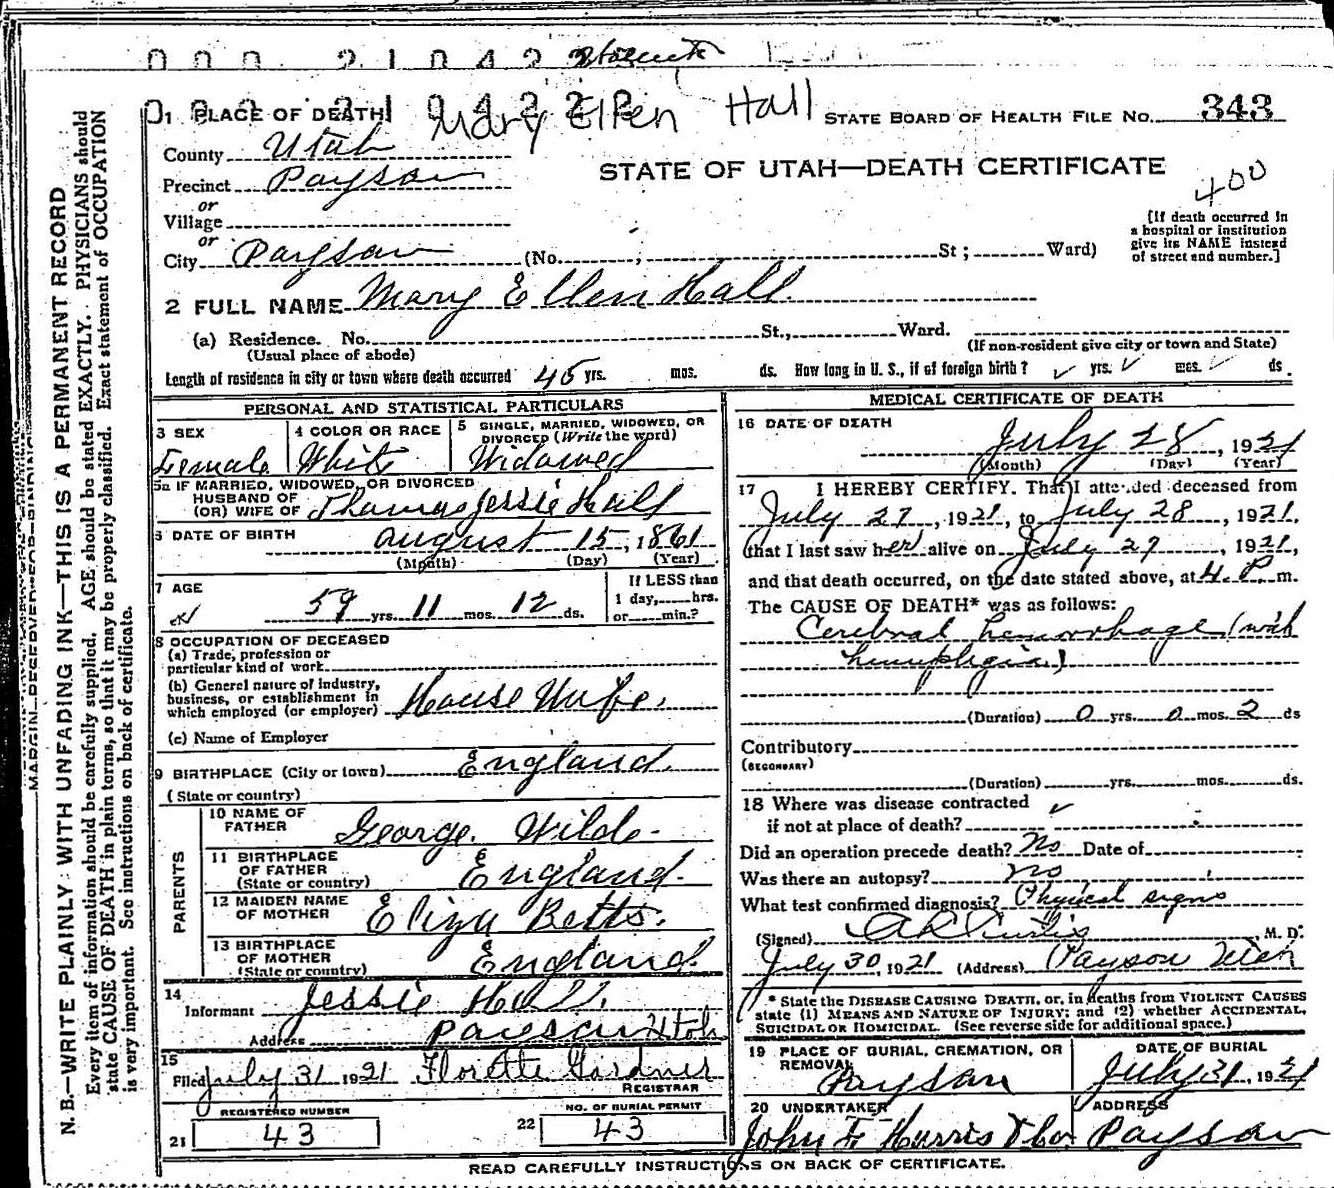 000 21042 
Mary Ellen Hall
1 PLACE OF DEATH
STATE BOARD OF HEALTH FILE NO. 343
County Utah
STATE OF UTAH—DEATH CERTIFICATE
400
Precinct Payson
or
Village
or
City Payson (No. ; St; Ward)
[If death occurred in
a hospital or institution
give its NAME instead
of street and number.]
2 FULL NAME Mary Ellen Hall
(a) Residence. No. St., Ward.
(Usual place of abode)
(If non-resident give city or town and State)
Length of residence in city or town where death occurred 45 yrs. mos. ds. How long in U. S., if of foreign birth? ✓ yrs. ✓ mos. ✓ ds.
PERSONAL AND STATISTICAL PARTICULARS
3 SEX
Female
4 COLOR OR RACE
White
5 SINGLE, MARRIED, WIDOWED, OR
DIVORCED (Write the word)
Widowed
5a IF MARRIED, WIDOWED, OR DIVORCED
HUSBAND OF
(OR) WIFE OF Thomas Jessie Hall
6 DATE OF BIRTH August 15, 1861
(Month) (Day) (Year)
7 AGE
59 yrs. 11 mos. 12 ds.
If LESS than
1 day, hrs.
or min.?
8 OCCUPATION OF DECEASED
(a) Trade, profession or
particular kind of work
(b) General nature of industry,
business, or establishment in
which employed (or employer) House Wife.
(c) Name of Employer
9 BIRTHPLACE (City or town) England
(State or country)
PARENTS
10 NAME OF
FATHER George Wilde
11 BIRTHPLACE
OF FATHER
(State or country) England
12 MAIDEN NAME
OF MOTHER Eliza Betts.
13 BIRTHPLACE
OF MOTHER
(State or country) England
14
Informant Jessie Hall
Address Payson Utah
15
Filed July 31 1921 Florette Gardner
REGISTRAR
REGISTERED NUMBER
21 43
NO. OF BURIAL PERMIT
22 43
MEDICAL CERTIFICATE OF DEATH
16 DATE OF DEATH
July 28, 1921
(Month) (Day) (Year)
17 I HEREBY CERTIFY. That I attended deceased from
July 27, 1921, to July 28, 1921,
that I last saw her alive on July 27, 1921,
and that death occurred, on the date stated above, at 4 P m.
The CAUSE OF DEATH* was as follows:
Cerebral hemorrhage (with
hemiplegia)
(Duration) 0 yrs. 0 mos. 2 ds
Contributory
(SECONDARY)
(Duration) yrs. mos. ds.
18 Where was disease contracted
if not at place of death? ✓
Did an operation precede death? No Date of
Was there an autopsy? no
What test confirmed diagnosis? Physical signs
(Signed) A L Curtis, M. D.
July 30, 1921 (Address) Payson Utah
* State the DISEASE CAUSING DEATH, or, in deaths from VIOLENT CAUSES
state (1) MEANS AND NATURE OF INJURY; and (2) whether ACCIDENTAL,
SUICIDAL OR HOMICIDAL. (See reverse side for additional space.)
19 PLACE OF BURIAL, CREMATION, OR
REMOVAL
Payson
DATE OF BURIAL
July 31, 1921
20 UNDERTAKER
John F Harris & Co.
ADDRESS
Payson
READ CAREFULLY INSTRUCTIONS ON BACK OF CERTIFICATE.
MARGIN RESERVED FOR BINDING
N. B.—WRITE PLAINLY WITH UNFADING INK—THIS IS A PERMANENT RECORD
Every item of information should be carefully supplied. AGE should be stated EXACTLY. PHYSICIANS should
state CAUSE OF DEATH in plain terms, so that it may be properly classified. Exact statement of OCCUPATION
is very important. See instructions on back of certificate.